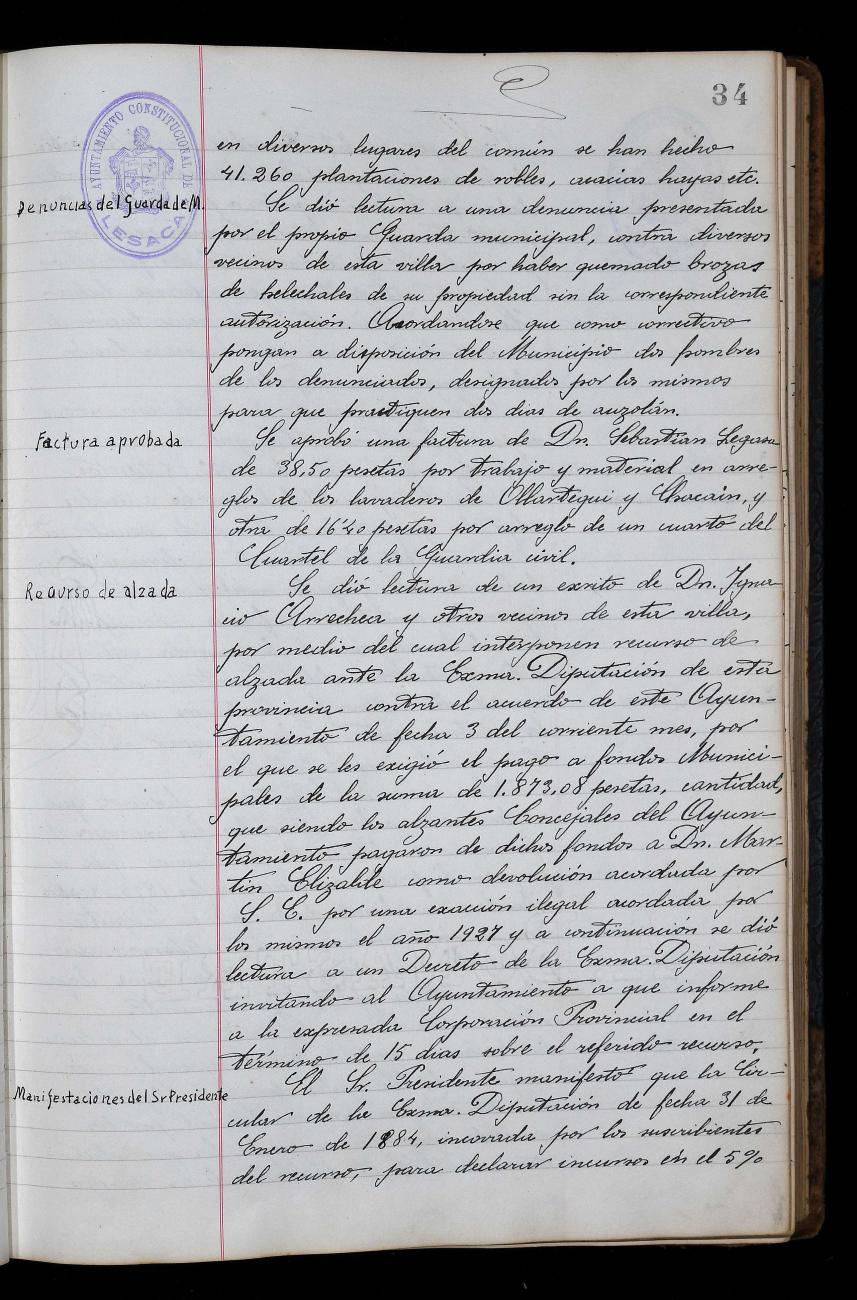 34
AYUNTAMIENTO CONSTITUCIONAL DE
LESACA
en diversos lugares del común se han hecho
41.260 plantaciones de robles, acacias hayas etc.
Denuncias del Guarda de M.
Se dió lectura a una denuncia presentada
por el propio Guarda municipal, contra diversos
vecinos de esta villa por haber quemado brozas
de helechales de su propiedad sin la correspondiente
autorización. Acordandose que como correctivo
pongan a disposición del Municipio dos hombres
de los denunciados, designados por los mismos
para que practiquen dos dias de auzolán.
Factura aprobada
Se aprobó una factura de Dn. Sebastian Legasa
de 38,50 pesetas por trabajo y material en arre-
glos de los lavaderos de Ollartegui y, y
otra de pesetas por arreglo de un cuarto del
Cuartel de la Guardia civil.
Recurso de alzada
Se dió lectura de un escrito de Dn. Igna-
cio Arrechea y otros vecinos de esta villa,
por medio del cual interponen recurso de
alzada ante la Exma. Diputación de esta
provincia contra el acuerdo de este Ayun-
tamiento de fecha 3 del corriente mes, por
el que se les exigió el pago a fondos Munici-
pales de la suma de 1.873,08 pesetas, cantidad,
que siendo los alzantes Concejales del Ayun-
tamiento pagaron de dichos fondos a Dn. Mar-
tin Elizalde como devolución acordada por
S. E. por una exacción ilegal acordada por
los mismos el año 1927 y a continuación se dió
lectura a un Decreto de la Exma. Diputación
invitando al Ayuntamiento a que informe
a la expresada Corporación Provincial en el
término de 15 dias sobre el referido recurso,
Manifestaciones del Sr Presidente
El Sr. Presidente manifestó que la Cir-
cular de la Exma. Diputación de fecha 31 de
Enero de 1884, incovada por los suscribientes
del recurso, para declarar incursos en el 5%